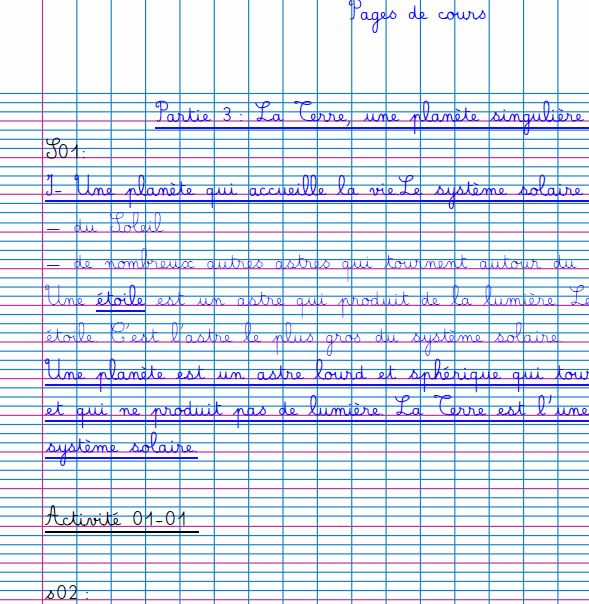 Pages de cours
Partie 3 : La Terre, une planète singulière
S01:
I- Une planète qui accueille la vie.Le système solaire
– du Soleil
– de nombreux autres astres qui tournent autour du
Une étoile est un astre qui produit de la lumière. Le
étoile. C'est l'astre le plus gros du système solaire.
Une planète est un astre lourd et sphérique qui tour
et qui ne produit pas de lumière. La Terre est l'une
système solaire.
Activité 01-01
s02 :